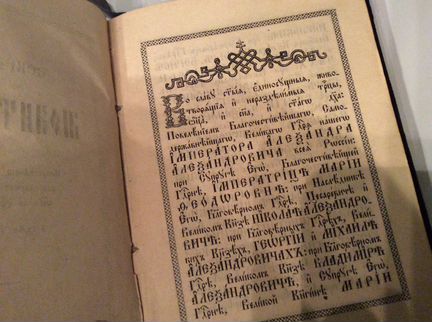 МОЛИТВ
Во славу ст҃ыѧ, є҆диносꙋщныѧ, живо-
творѧщїѧ и҆ нераздѣльныѧ трⷪ҇цы,
Ѻ҆ц҃а̀, и҆ сн҃а, и҆ ст҃а́гѡ дх҃а:
Повелѣнїемъ Благочестивѣйшагѡ, Само-
державнѣйшагѡ, Великагѡ Гдⷭ҇рѧ нашегѡ
ИМПЕРАТОРА АЛЕѮАНДРА
АЛЕѮАНДРОВИЧА всеѧ Рѡссїи:
при Сꙋпрꙋгѣ Єгѡ̀, Благочестивѣйшей
Гдⷭ҇рнѣ, ИМПЕРАТРИЦѢ МАРІИ
ѲЕОДѠРОВНѢ: при Наслѣдникѣ
Єгѡ̀, Благовѣрномъ Гдⷭ҇рѣ, Цесаревичѣ и҆
Великомъ Кнѧзѣ НІКОЛАѢ АЛЕѮАНДРО-
ВИЧѢ: при Благовѣрныхъ Гдⷭ҇рѣхъ, Вели-
кихъ Кнѧзѣхъ, ГЕѠРГІИ и҆ МИХАИЛѢ
АЛЕѮАНДРОВИЧАХЪ: при Благовѣрномъ
Гдⷭ҇рѣ, Великомъ Кнѧзѣ ВЛАДИМІРѢ
АЛЕѮАНДРОВИЧѢ, и҆ Сꙋпрꙋгѣ Єгѡ̀,
Гдⷭ҇рнѣ, Великой Кнѧгинѣ МАРІИ